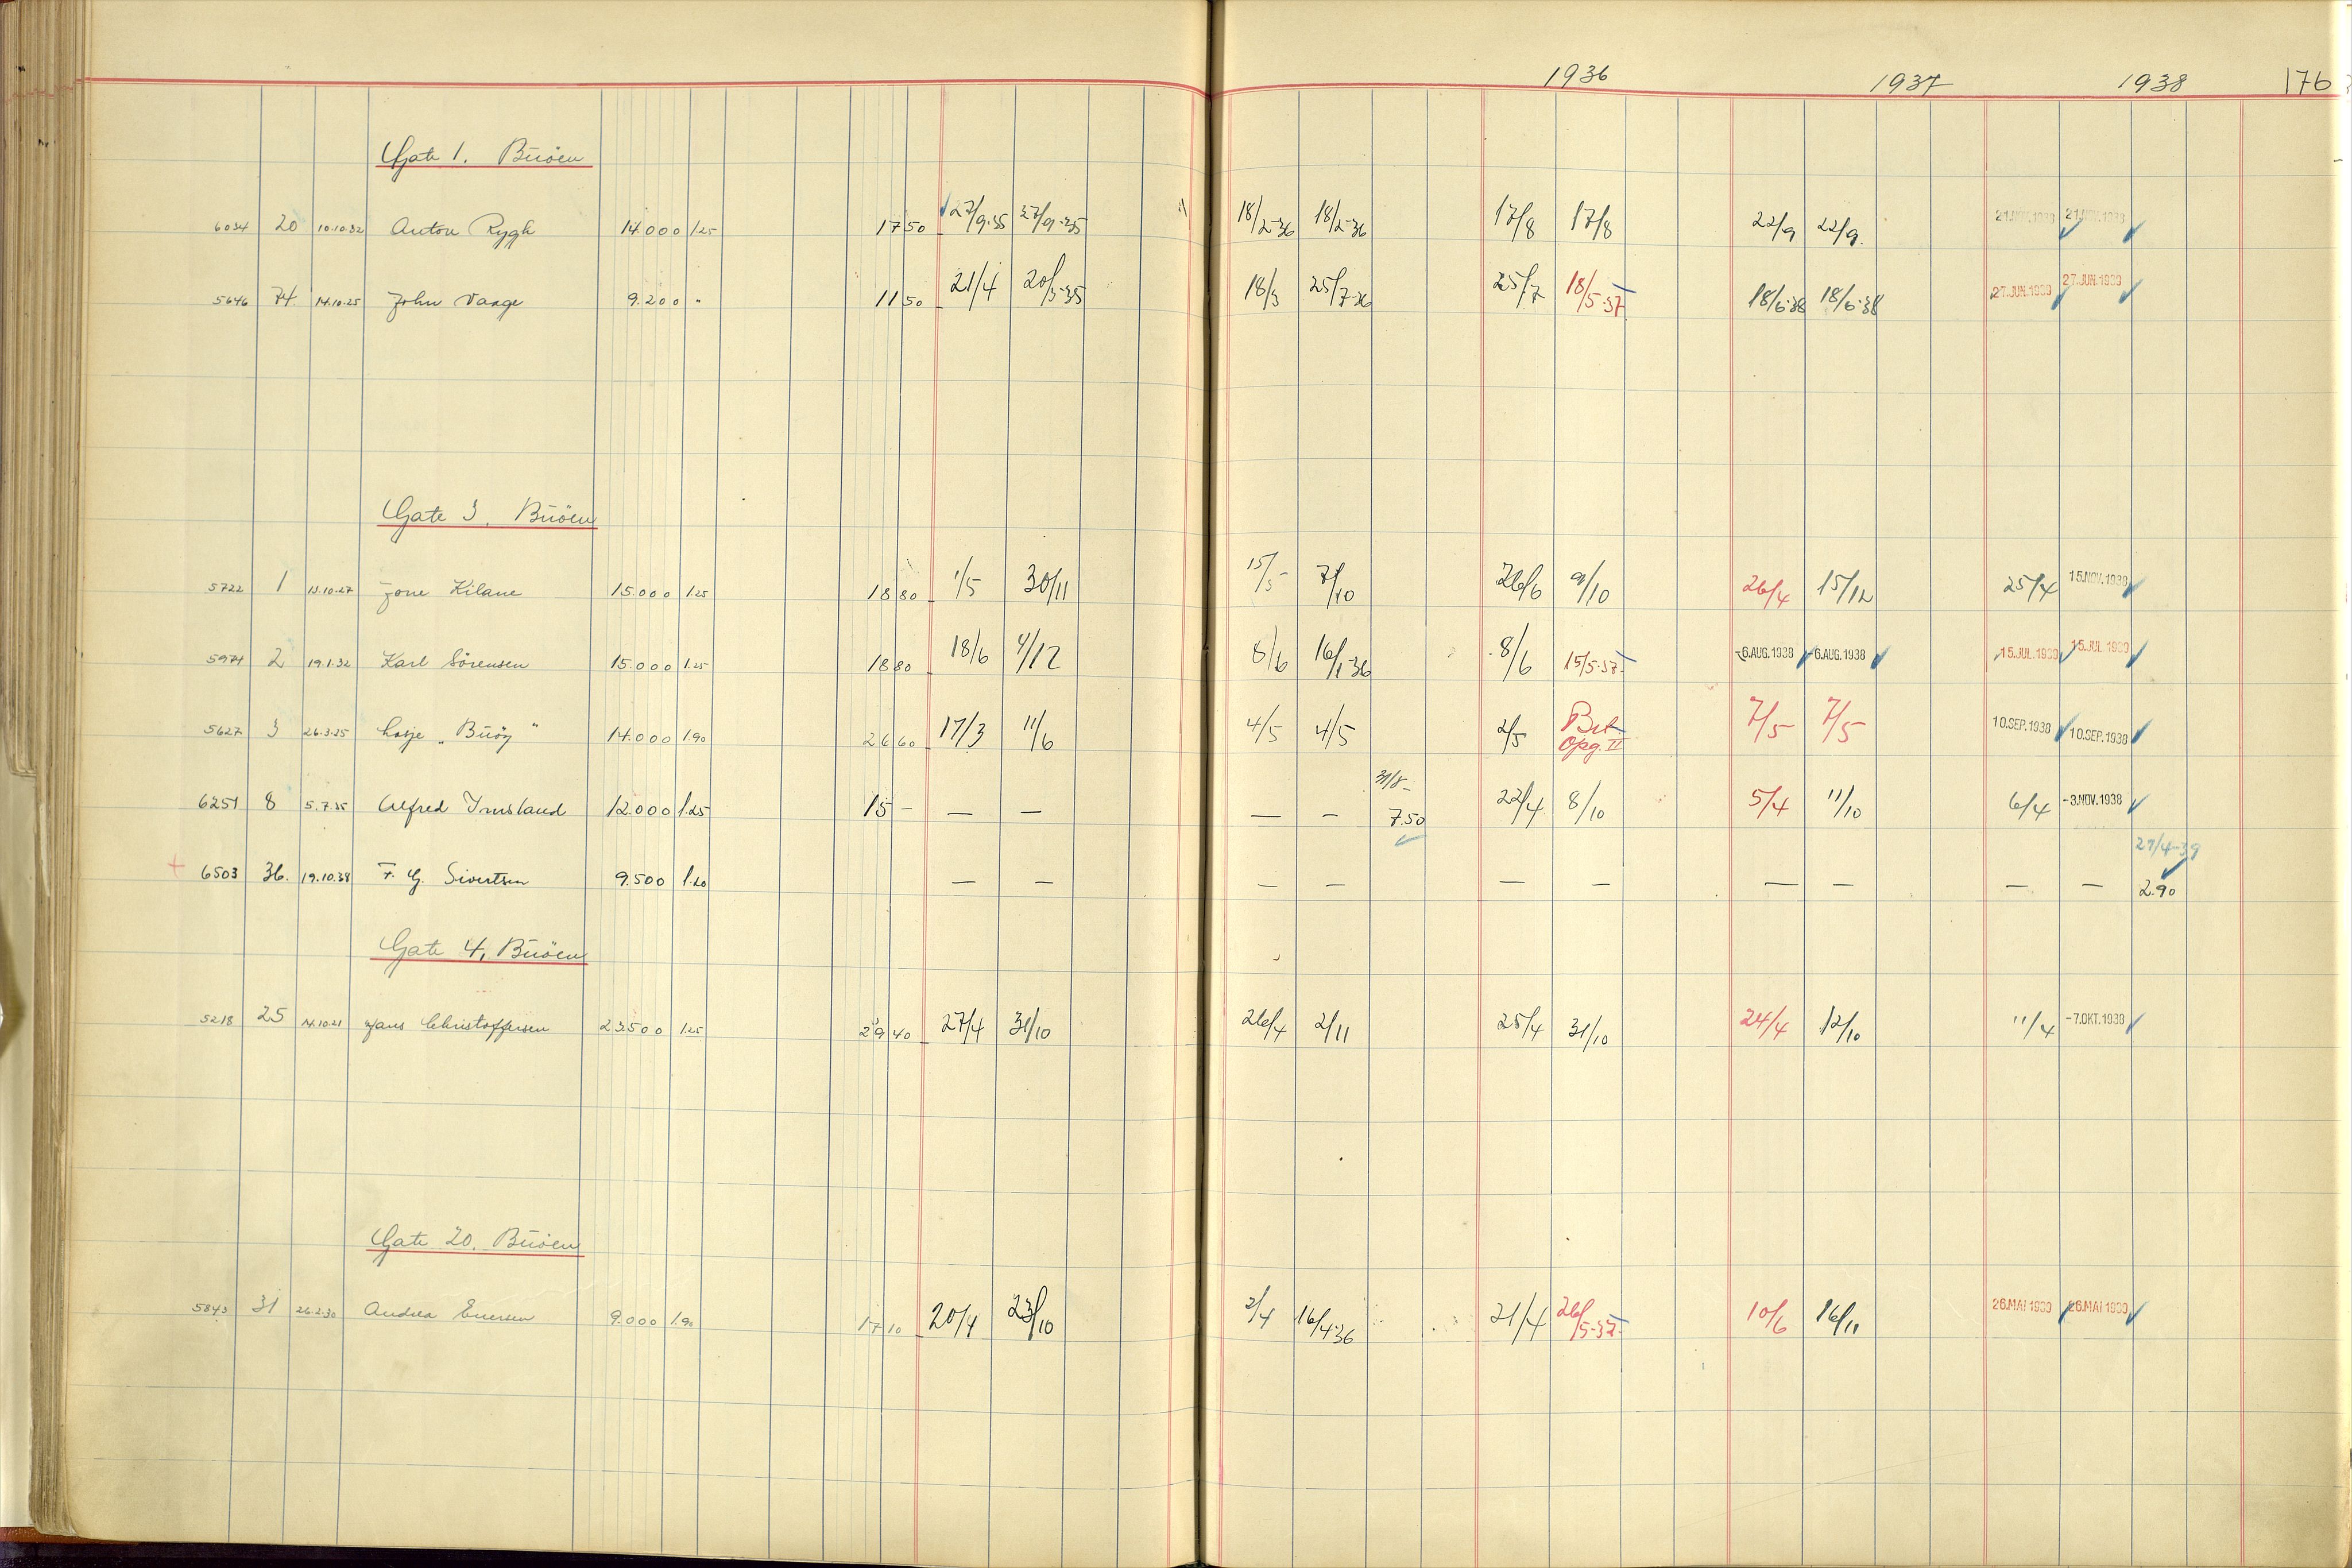 1936 1937 1938 176
Gate 1. Buöen
6034 20 10.10.32 Anton Rygh 14.000 1.25 17 50 27/9-35 27/9-35 18/2-36 18/2-36 17/8 17/8 22/9 22/9. 21.NOV.1938 21.NOV.1938
5646 74 14.10.25 John Vaage 9.200 " 11 50 21/4 20/3-35 18/3 25/7-36 25/7 18/5-37 18/6-38 18/6-38 27.JUN.1939 27.JUN.1939
Gate 3. Buöen
5722 1 13.10.27 Jone Kilane 15.000 1.25 18 80 1/5 30/11 15/5 7/10 26/6 9/10 26/4 15/12 25/4 15.NOV.1938
5974 2 19.1.32 Karl Sörensen 15.000 1.25 18 80 18/6 4/12 8/6 16/1-36 8/6 15/5-37 -6.AUG.1938 -6.AUG.1938 15.JUL.1939 15.JUL.1939
5627 3 26.3.25 Losje „Buöy" 14.000 1.90 26 60 17/3 11/6 4/5 4/5 2/5 Bet 7/5 7/5 10.SEP.1938 10.SEP.1938
Opg. II
31/8-
6251 8 5.7.35 Alfred Imsland 12.000 1.25 15 - — — — — 7.50 22/4 8/10 5/4 11/10 6/4 -3.NOV.1938
27/4-39
+ 6503 36. 19.10.38 F. G. Sivertsen 9.500 1.20 — — — — — — — — — — 2.90
Gate 4, Buöen
5218 25 14.10.21 Hans Christoffersen 23500 1.25 29 40 27/4 31/10 26/4 2/11 25/4 31/10 24/4 12/10 11/4 -7.OKT.1938
Gate 20. Buöen
5843 31 26.2.30 Andrea Enersen 9.000 1.90 17 10 20/4 23/10 2/4 16/4-36 21/4 26/5-37 10/6 16/11 26.MAI 1939 26.MAI 1939